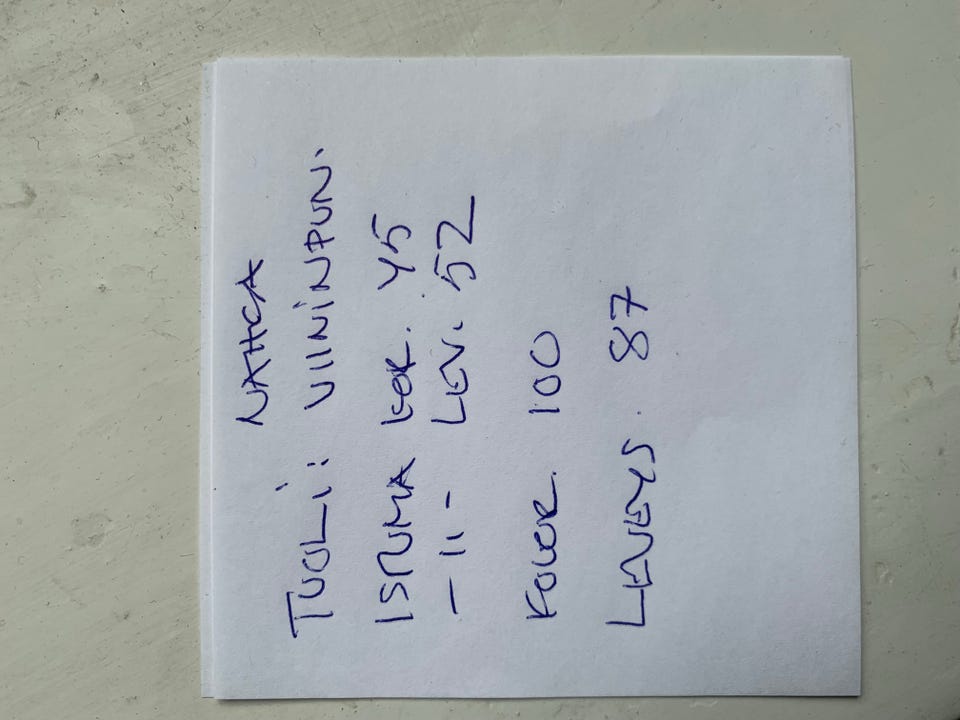 NAHKA
TUOLI: VIININPUN.
ISTUMA KOR. 45
-11- LEV. 52
KOKOR. 100
LEVEYS. 87